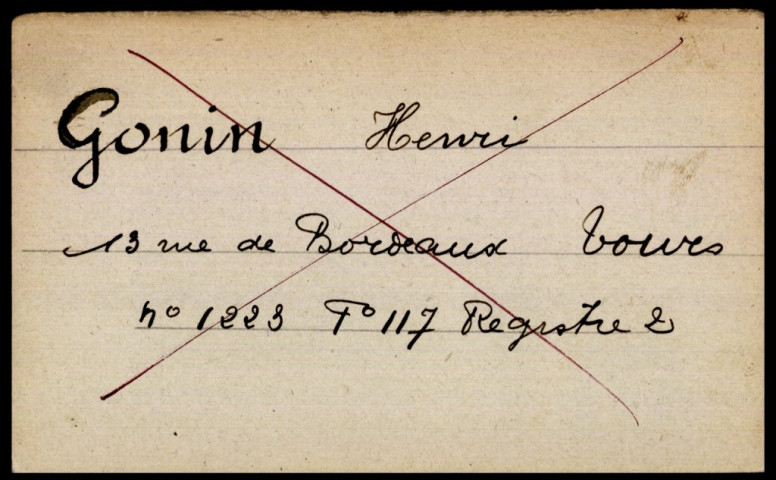 Gonin Henri
13 rue de Bordeaux Tours
no 1223 Fo 117 Registre 2